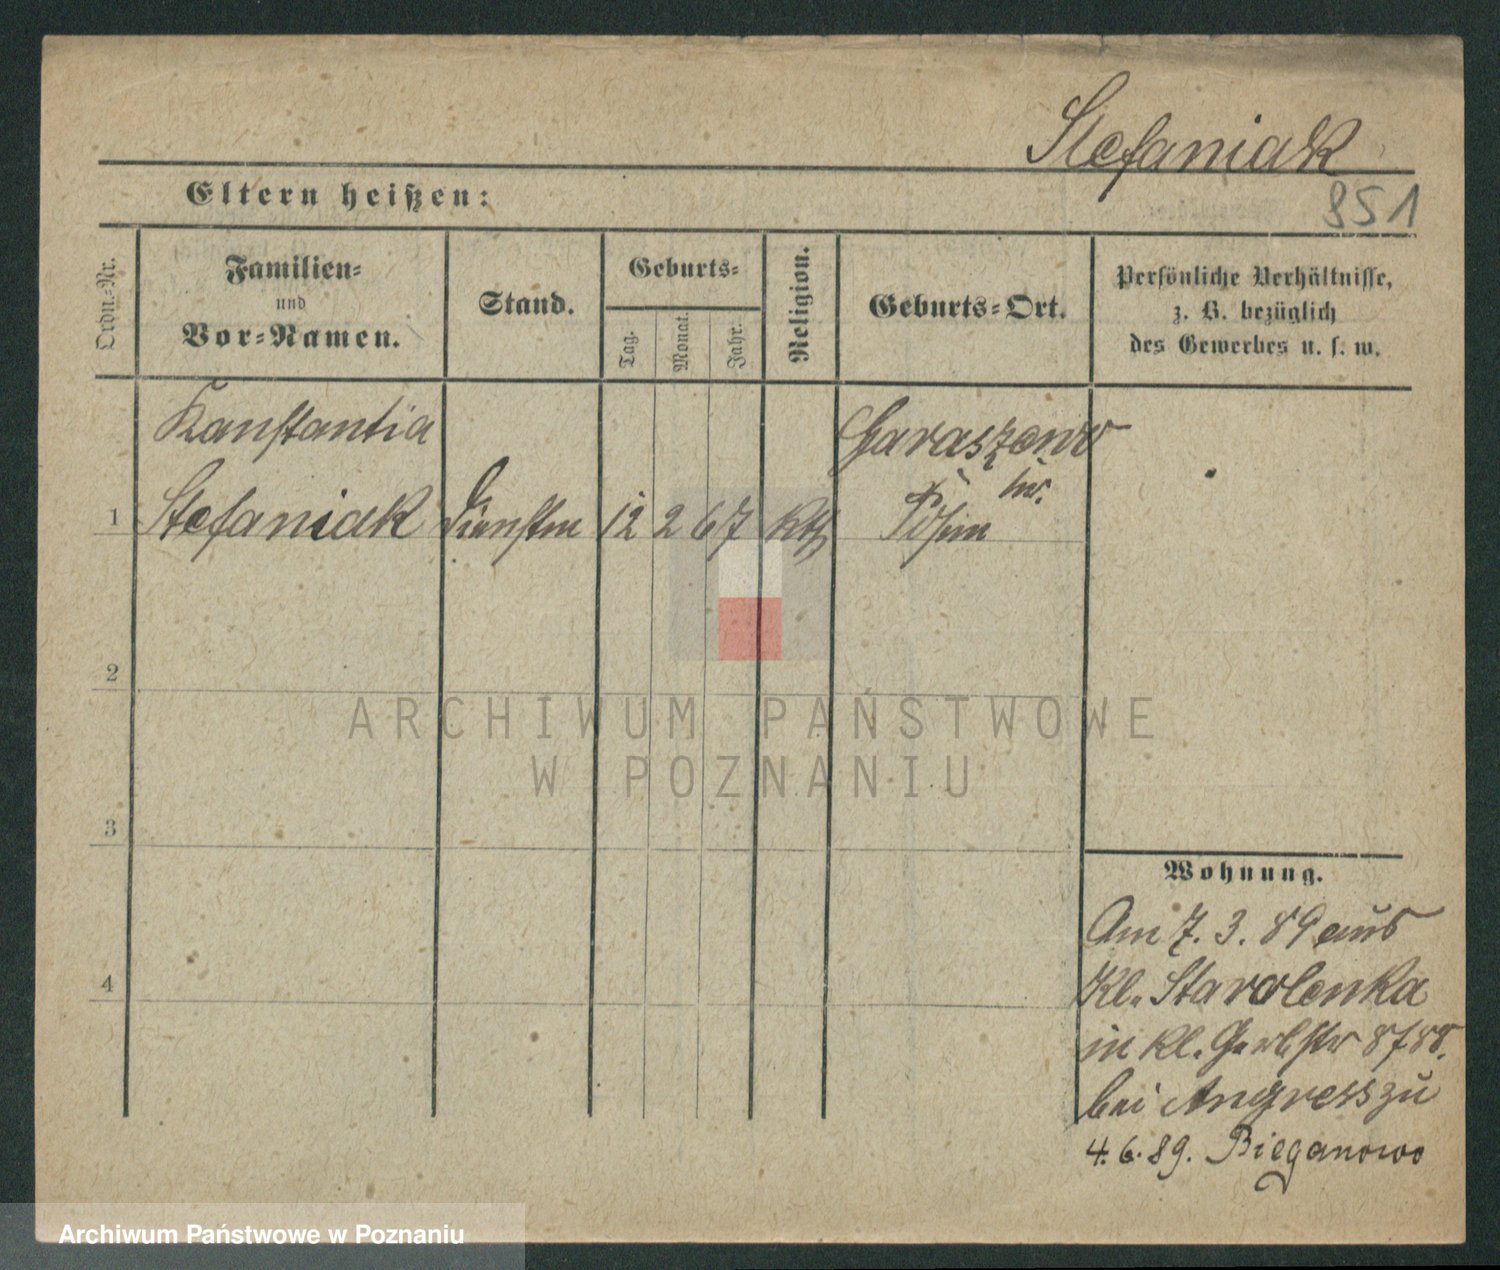 Stefaniak
851
Eltern heißen:
Ordn.-Nr.
Familien-
und
Vor-Namen.
Stand.
Geburts-
Tag.
Monat.
Jahr.
Religion.
Geburts-Ort.
Persönliche Verhältnisse,
z. B. bezüglich
des Gewerbes u. s. w.
Konstantia
Garaszewo
1 Stefaniak 12 2 67 kth
2
3
4
ARCHIWUM PAŃSTWOWE
W POZNANIU
Wohnung.
Am 7. 3. 89 aus
Kl. Starolenka
in Kl. Gerbstr
bei Angress zu
4. 6. 89. Bieganowo
Archiwum Państwowe w Poznaniu